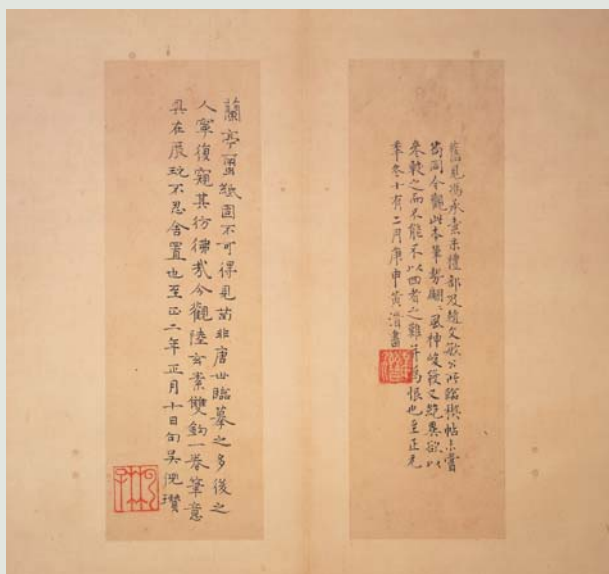 舊見馮承素米禮部及趙文敏公所臨禊帖未嘗
苟同今觀此本筆勢翩〻風神峻發又絕異欲以
參較之而不能不以四者之難并為恨也至正元
年冬十有二月庚申黃溍書
蘭亭璽紙固不可得見苟非唐世臨摹之多後之
人寧復窺其彷彿哉今觀陸玄素雙鈎一卷筆意
具在展玩不忍舍置也至正二年正月十日句吳倪瓚